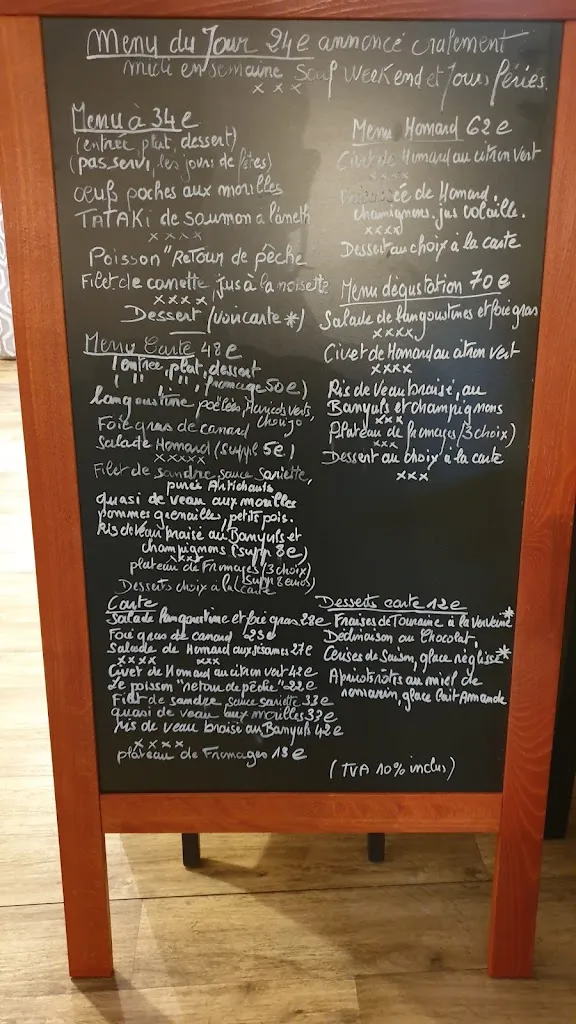 Menu du Jour 24e annoncé oralement
midi en semaine Sauf Weekend et Jours fériés.
x x x
Menu à 34e
(entrée, plat, dessert)
(pas servi, les jours de fêtes)
œufs poches aux morilles
TATAKI de saumon a l'aneth
x x x x
Poisson "Retour de pêche
Filet de canette, jus à la noisette
x x x x
Dessert (voir carte *)
Menu Carte 48e
1 entrée, plat, dessert
" " " , fromage 50e)
langoustine poêlées, Haricots verts,
chorizo
Foie gras de canard
Salade Homard (suppl 5e)
x x x x x
Filet de sandre sauce sariette,
purée Artichauts
quasi de veau aux morilles
pommes grenaille, petits pois.
Ris de veau braisé au Banyuls et
champignons (supp 8e)
x x x
plateau de Fromages (3 choix)
(supp 8 euros)
Desserts choix à la Carte
Menu Homard 62e
Civet de Homard au citron vert
x x x x
de Homard,
champignons, jus volaille.
x x x x
Dessert au choix à la carte
Menu dégustation 70e
Salade de langoustines et foie gras
x x x x
Civet de Homard au citron vert
x x x x
Ris de veau braisé, au
Banyuls et champignons
x x x
Plateau de fromages (3 choix)
x x x
Dessert au choix à la carte
x x x
Carte
Salade langoustine et foie gras 28e
Foie gras de canard 23e
Salade de Homard aux sésames 27e
x x x x x x x
Civet de Homard au citron vert 42e
Le poisson "retour de pêche" 22e
Filet de sandre sauce sariette 33e
quasi de veau aux morilles 33e
Ris de veau braisé au Banyuls 42e
x x x x
plateau de Fromages 13e
Desserts carte 12e
Fraises de Touraine à la Verveine*
Déclinaison au Chocolat,
Cerises de Saison, glace réglisse*
Apricots rôtis au miel de
romarin, glace lait Amande
(TVA 10% inclus)